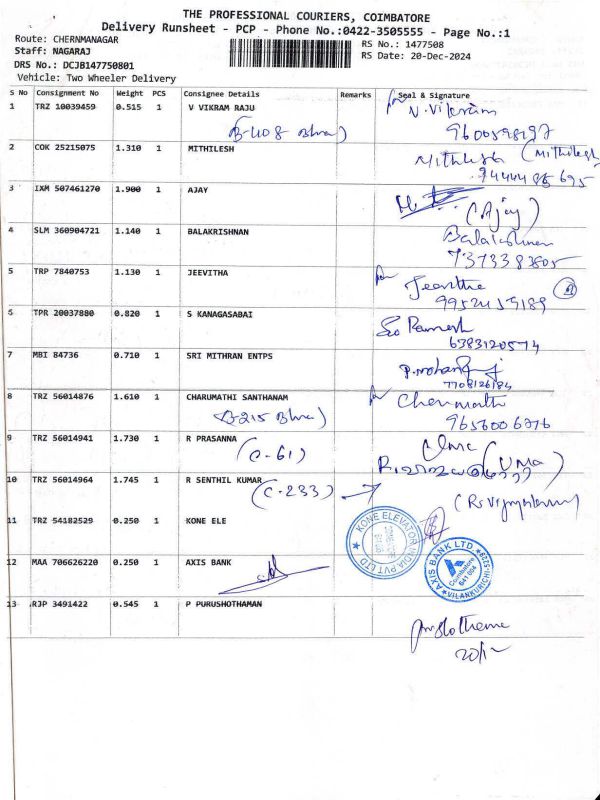 THE PROFESSIONAL COURIERS, COIMBATORE
Delivery Runsheet - PCP - Phone No.:0422-3505555 - Page No.:1
Route: CHERNMANAGAR
RS No.: 1477508
Staff: NAGARAJ
RS Date: 20-Dec-2024
DRS No.: DCJB147750801
Vehicle: Two Wheeler Delivery
S No Consignment No Weight PCS Consignee Details Remarks Seal & Signature
1 TRZ 10039459 0.515 1 V VIKRAM RAJU
N. Vikram
B-408
9600598197
2 COK 25215075 1.310 1 MITHILESH
Mithilesh (Mithilesh)
9444485695
3 IXM 507461270 1.900 1 AJAY
(Ajay)
4 SLM 360904721 1.140 1 BALAKRISHNAN
Balakrishnan
7373383805
5 TRP 7840753 1.130 1 JEEVITHA
Jeevitha
9952459189
6 TPR 20037880 0.820 1 S KANAGASABAI
Ramesh
6383120574
7 MBI 84736 0.710 1 SRI MITHRAN ENTPS
P. mohan
7708126184
8 TRZ 56014876 1.610 1 CHARUMATHI SANTHANAM
B-215
9656006276
9 TRZ 56014941 1.730 1 R PRASANNA
(C-61)
Uma
(UMA)
10 TRZ 56014964 1.745 1 R SENTHIL KUMAR
(C-233)
11 TRZ 54182529 0.250 1 KONE ELE
KONE ELEVATOR INDIA PVT LTD
12 MAA 706626220 0.250 1 AXIS BANK
AXIS BANK LTD.
Coimbatore
641 004
VILANKURICHI
13 RJP 3491422 0.545 1 P PURUSHOTHAMAN
20/12